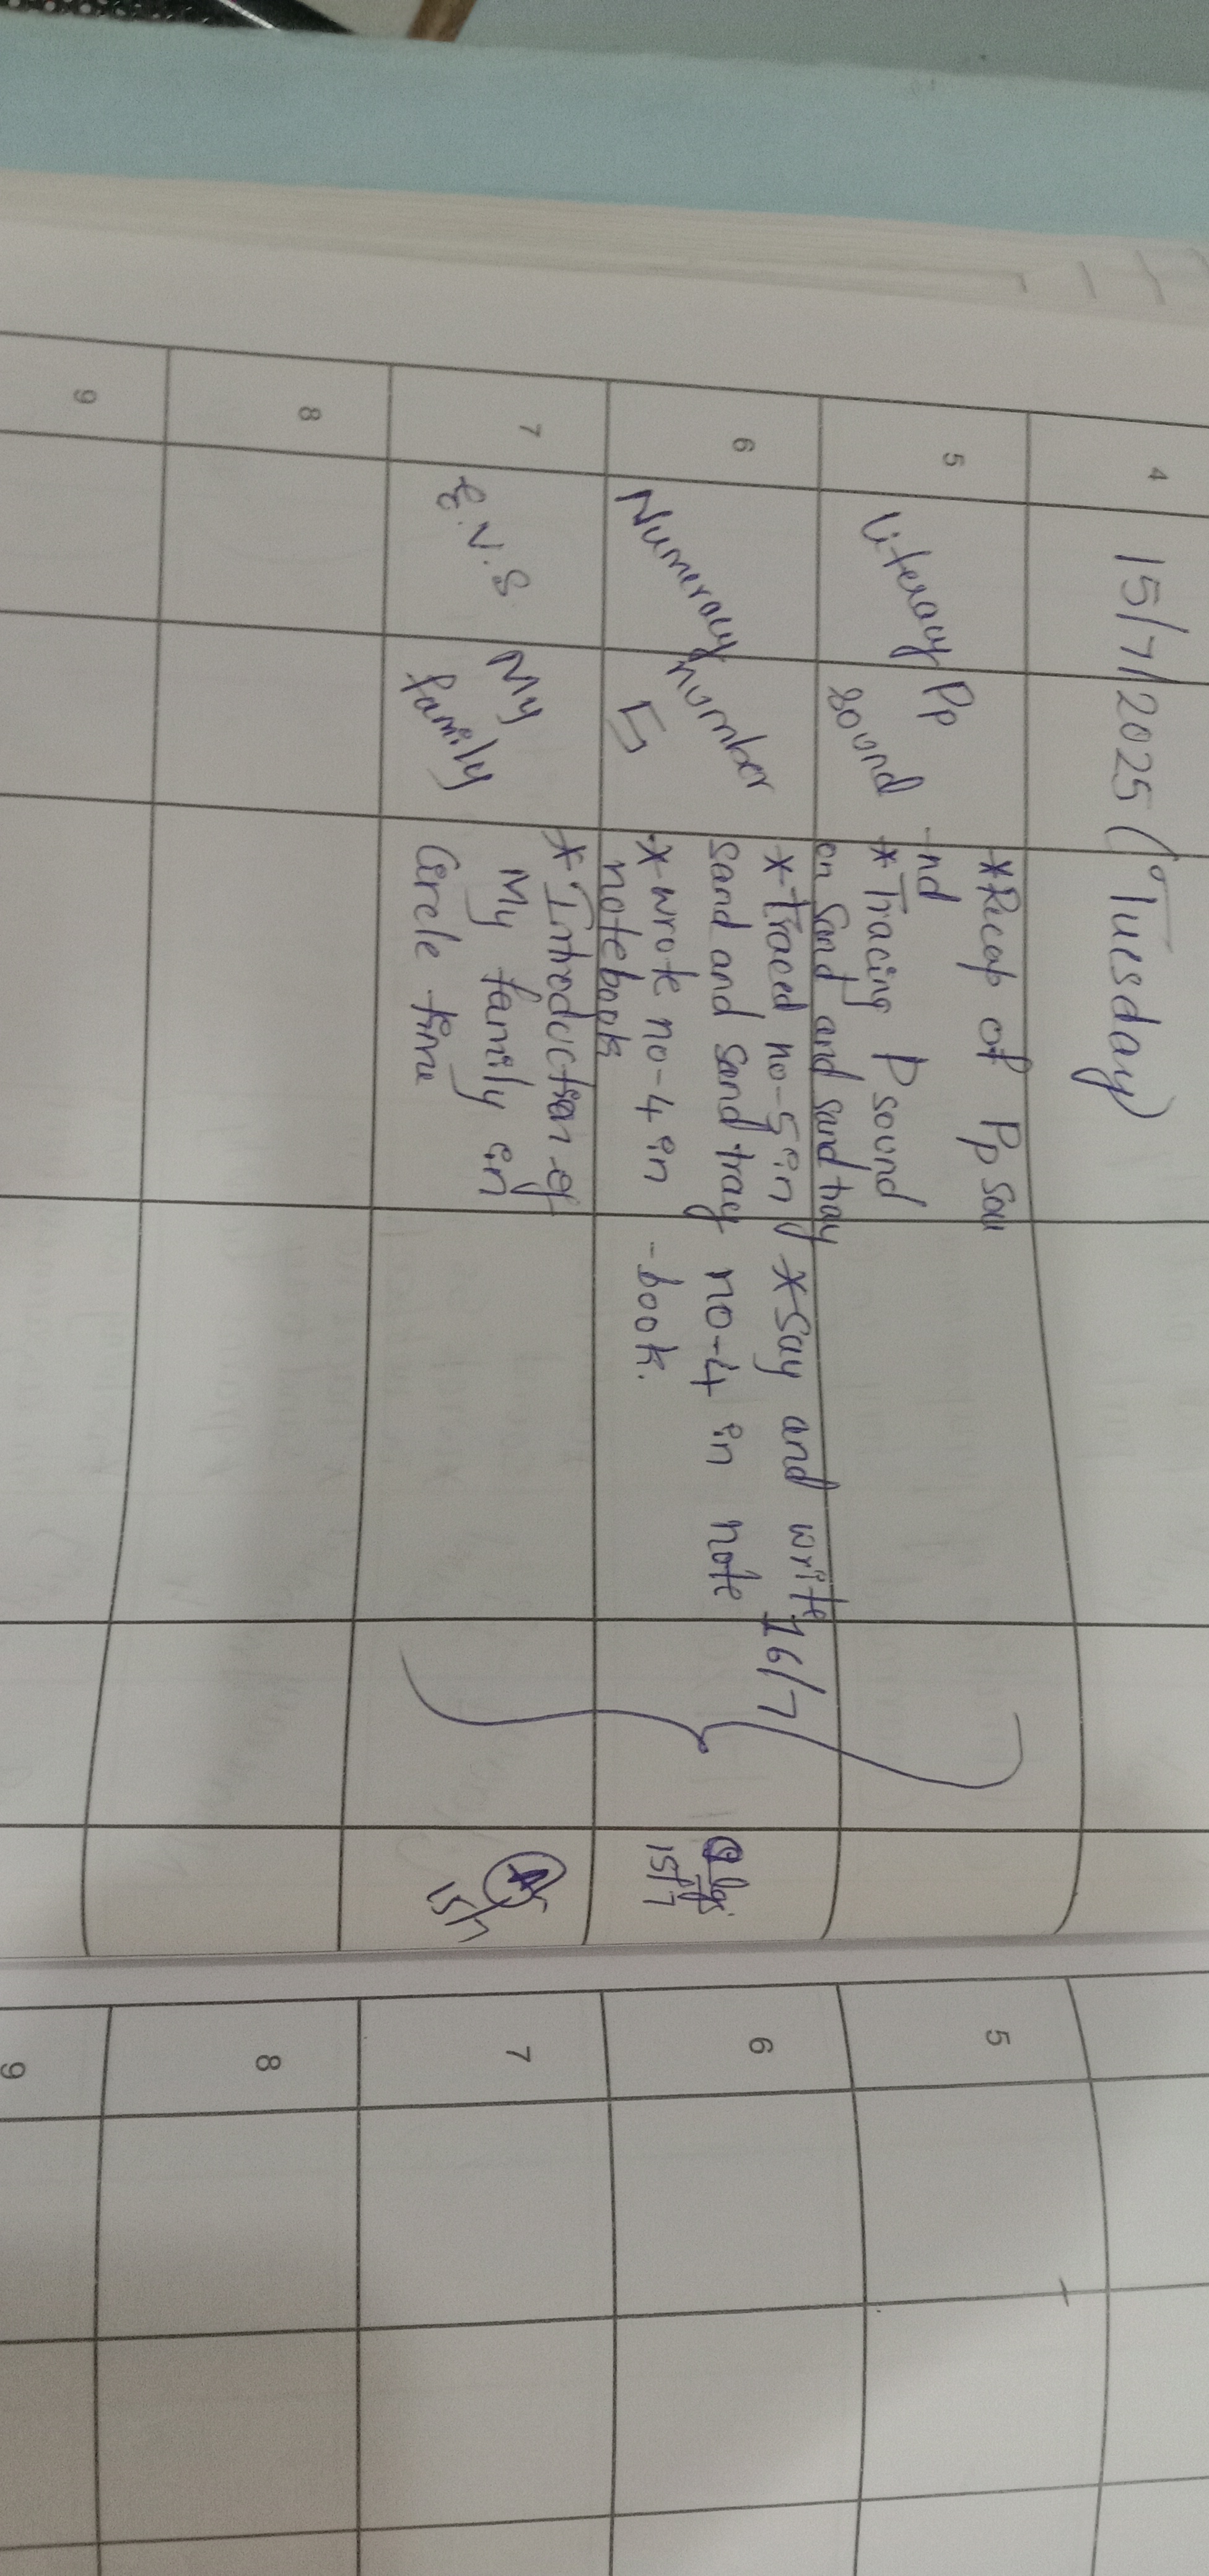 4 15/7/2025 (Tuesday)
5 Literacy Pp sound
*Recap of Pp sou
-nd
*Tracing P sound
on sand and sand tray
6 Numeracy number 5
*Traced no-5 in
sand and sand tray
*wrote no-4 in
notebook
*Say and write
no-4 in note
-book.
16/7
15/7
7 E.V.S My family
*Introduction of
My family in
Circle time
15/7
8
9
5
6
7
8
9